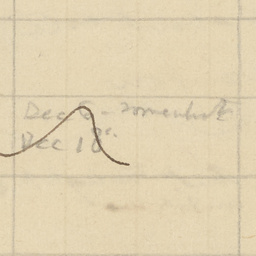 Dec 6 - somewhat
Dec 18